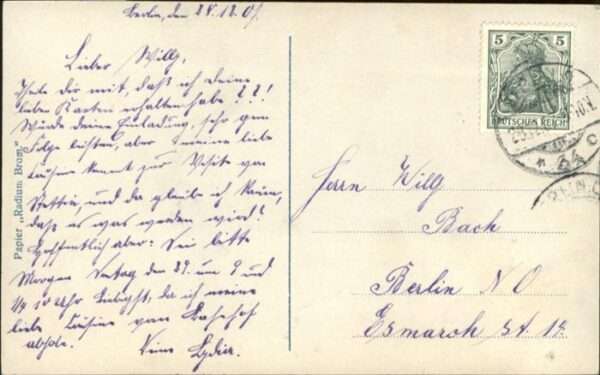 Berlin, den 28.12.07.
Lieber Willy,
Theile dir mit, daß ich deine
lieben Karten erhalten habe ???!
Würde deiner Einladung, sehr gern
Folge leisten, aber meine liebe
Cusine kommt zur Visite von
Stettin, und da glaube ich kaum,
daß es was werden wird?
Hoffentlich aber: Sei bitte
Morgen den 29. um 9 und
1/4 10 Uhr da ich meine
liebe Cusine vom Bahnhof
abhole.
Deine Lydia.
Papier „Radium Brom"
5 5
DEUTSCHES REICH
Herrn Willy
Bach
Berlin NO
Esmarch st. 18